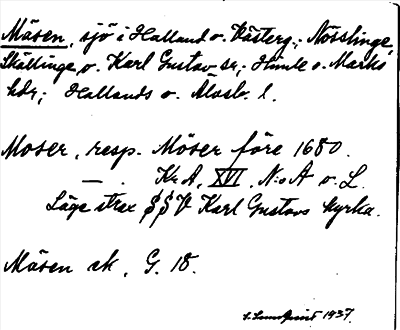 Mäsen, sjö i Halland o. Västerg.; Nösslinge,
Skällinge o. Karl Gustav sr; Himle o. Marks
hdr; Hallands o. Älvsb. l.
Moser, resp. Möser före 1680.
— . Kr.A. XVI, N:o A o. L.
Läge strax S S V Karl Gustavs kyrka.
Mäsen ek, G. 18.
S. Lundqvist 1937.